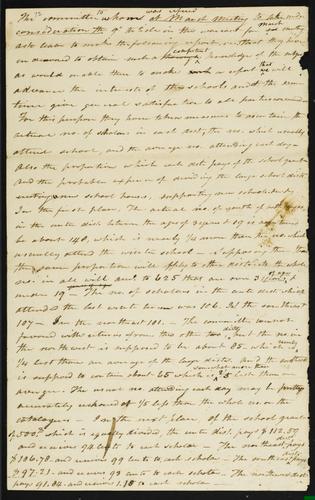 The committee to whom was referred at March Meeting to take under
consideration the 9th article in the warrant for said meeting
ask leave to make the following report, viz that they have
endeavored to obtain such a correct knowledge of the subject
as would enable them to make such a report that will
advance the interests of the schools and at the same
time give general satisfaction to all parties concerned.
For this purpose they have taken measures to ascertain the
actual no. of scholars in each dist, the no. which usually
attend school, and the average no. attending each day.
Also the proportion which each dist. pays of the school grant
and the probable expense of dividing the large school dists
erecting new school houses, supporting new schools &c.
In the first place. The actual no. of youth of both sexes
in the centre dist between the age of 3 years & 19 is
be about 140, which is nearly 1/4 more than the no. which
usually attend the winter school —
the same proportion will apply to the dists the whole
no. in all will amt to 625 that are over 3 years of age &
under 19 — The no. of scholars in the centre dist. which
attended the last winter term was 106. In the southeast
107 — In the northeast 101. — The committee cannot
favored with returns from the other two but the no. in
the northwest is supposed to be about 85 which is nearly
1/4 less than an average of the large dists. and the southwest
is supposed to contain about 65 which is somewhat more than less than an
average. The usual no. attending each day may be pretty
accurately reckoned at 1/5 less than the whole no. on the
catalogues — In the next place of the school grant
$500, which is equally divided, the centre dist. pays $112.50
and receives 94 cents to each scholar — The northeast dist pays
$106.78 and receives 99 cents to each scholar — The southeast pays
$97.21 and receives 93 cents to each scholar — The northwest dist
pays 91.04 and receives 1.18 to each scholar —